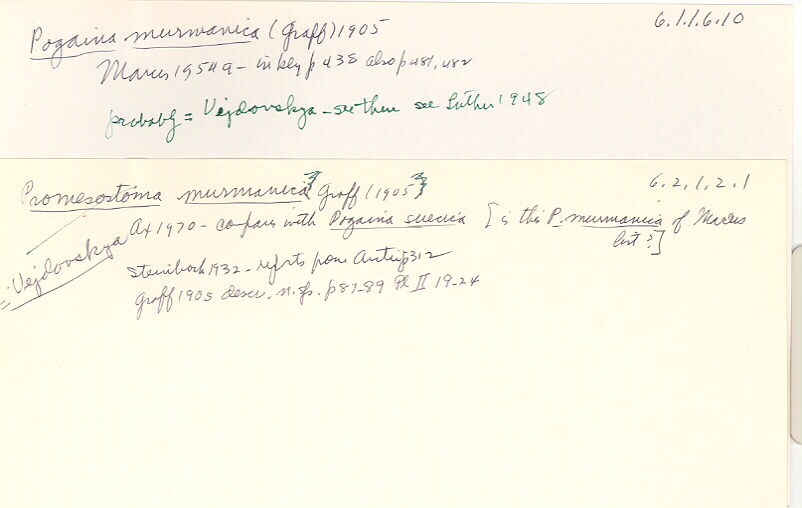 6.1.1.6.10
Pogaina murmanica (Graff) 1905
Marcus 1954a - in key p 438 also p 481, 482
probably = Vejdovskya - see there see Luther 1948
6.2.1.2.1
Promesostoma murmanica Graff (1905)
Ax 1970 - compares with Pogaina suecica [is this P. murmanica of Marcus
list?]
= Vejdovskya
Steinböck 1932 - reports from Arctic p 312
Graff 1905 descr. n. sp. p 87-89 Pl II 19-24